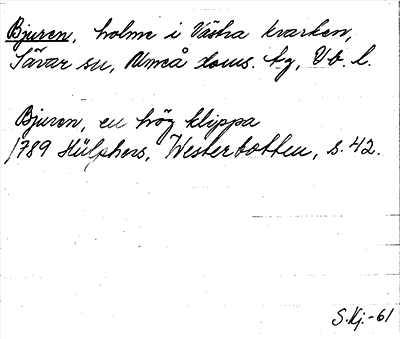 Bjuren, holme i Västra kvarken,
Sävar sn, Umeå doms. tg, Vb. l.
Bjuren, en hög klippa
1789 Hülphers, Westerbotten, s. 42.
S.Kj.-61